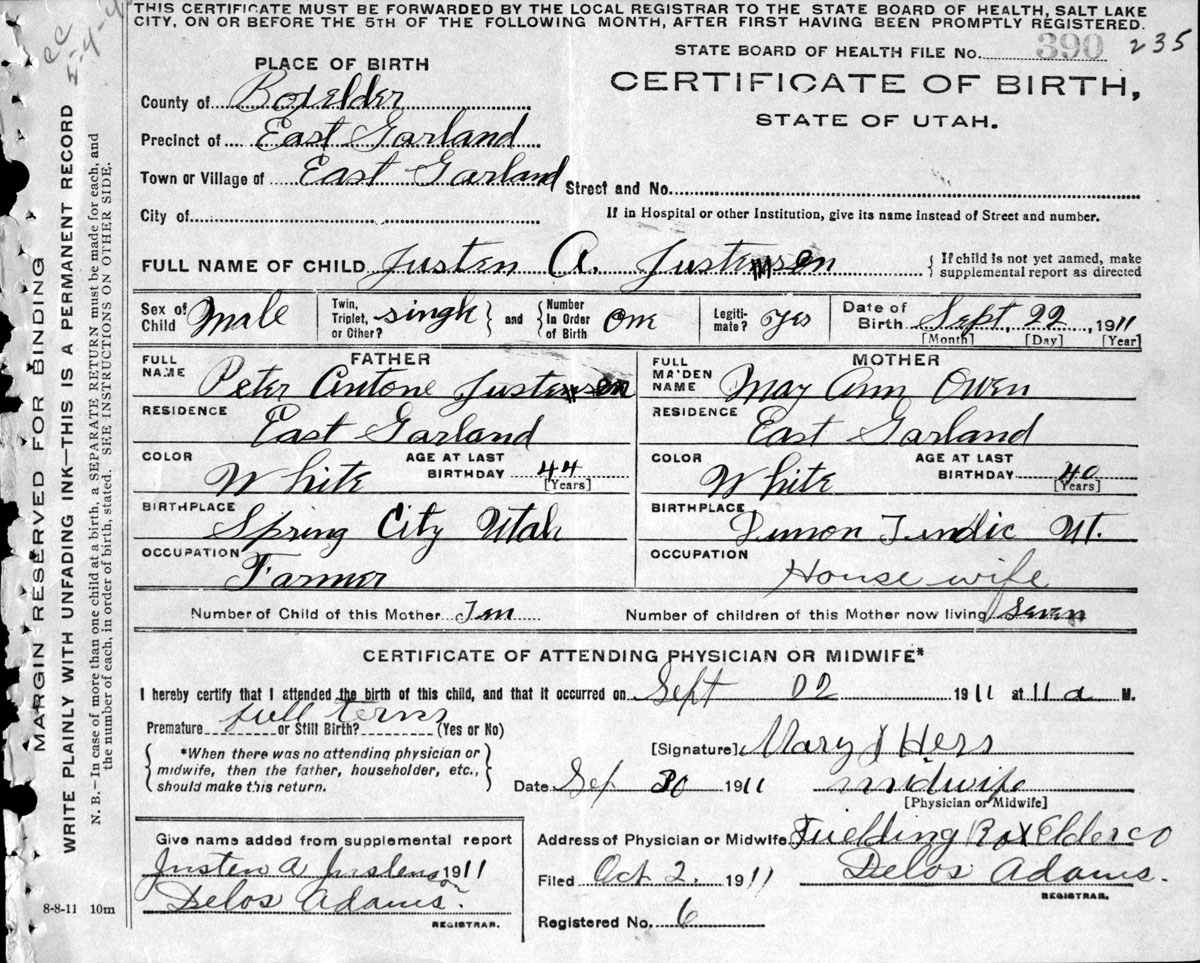 THIS CERTIFICATE MUST BE FORWARDED BY THE LOCAL REGISTRAR TO THE STATE BOARD OF HEALTH, SALT LAKE
CITY, ON OR BEFORE THE 5TH OF THE FOLLOWING MONTH, AFTER FIRST HAVING BEEN PROMPTLY REGISTERED.
STATE BOARD OF HEALTH FILE No. 390 235
CERTIFICATE OF BIRTH,
STATE OF UTAH.
PLACE OF BIRTH
County of Boxelder
Precinct of East Garland
Town or Village of East Garland Street and No.
City of If in Hospital or other Institution, give its name instead of Street and number.
FULL NAME OF CHILD Justen A. Justensen { If child is not yet named, make
supplemental report as directed
Sex of Child Male Twin, Triplet, or Other? single and Number In Order of Birth One Legiti-mate? Yes Date of Birth Sept 22, 1911
[Month] [Day] [Year]
FATHER
FULL NAME Peter Antone Justensen
RESIDENCE East Garland
COLOR White AGE AT LAST BIRTHDAY 44
[Years]
BIRTHPLACE Spring City Utah
OCCUPATION Farmer
MOTHER
FULL MAIDEN NAME May Ann Owen
RESIDENCE East Garland
COLOR White AGE AT LAST BIRTHDAY 40
[Years]
BIRTHPLACE Ut.
OCCUPATION House wife
Number of Child of this Mother Ten Number of children of this Mother now living Seven
CERTIFICATE OF ATTENDING PHYSICIAN OR MIDWIFE*
I hereby certify that I attended the birth of this child, and that it occurred on Sept 22 1911 at 11 a M.
full term
Premature or Still Birth? (Yes or No)
*When there was no attending physician or
midwife, then the father, householder, etc.,
should make this return.
[Signature] Mary
Date Sep 30 1911 midwife
[Physician or Midwife]
Address of Physician or Midwife Fielding Box Elder co
Filed Oct 2, 1911 Delos Adams.
REGISTRAR.
Registered No. 6
Give name added from supplemental report
Justen A Justenson 1911
Delos Adams.
REGISTRAR.
8-8-11 10m
MARGIN RESERVED FOR BINDING
WRITE PLAINLY WITH UNFADING INK—THIS IS A PERMANENT RECORD
N. B.—In case of more than one child at a birth, a SEPARATE RETURN must be made for each, and
the number of each, in order of birth, stated. SEE INSTRUCTIONS ON OTHER SIDE.